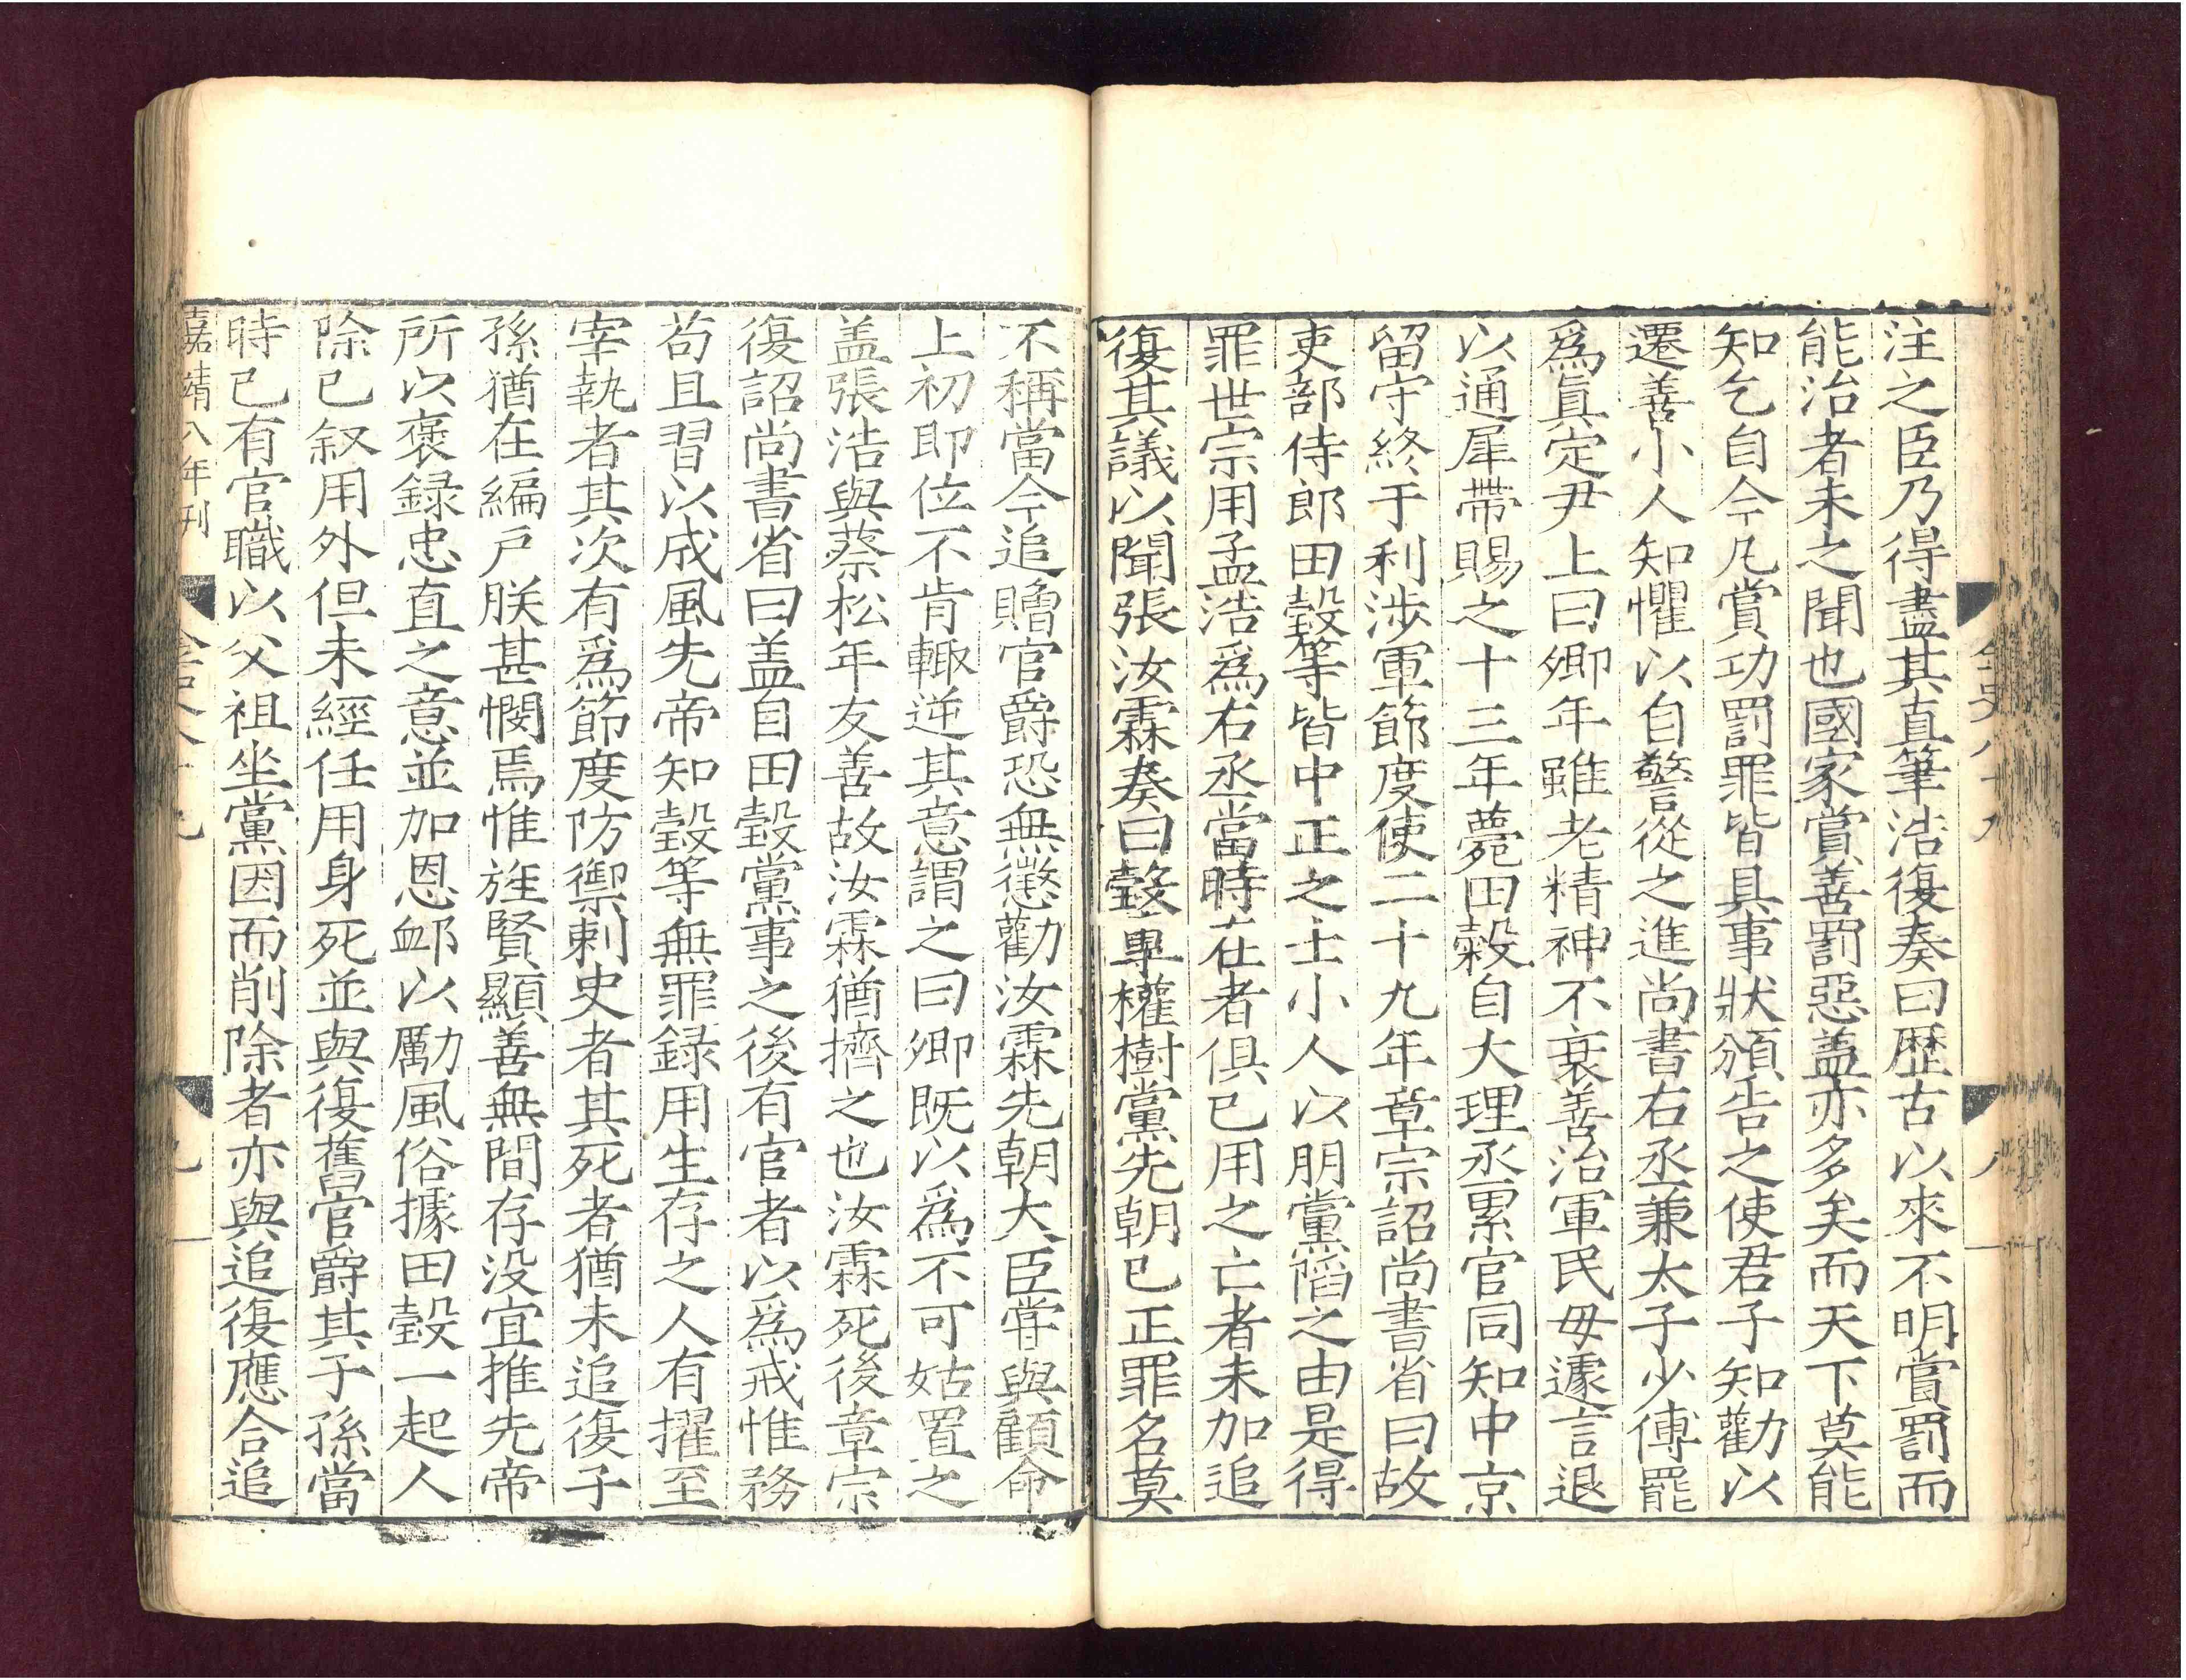 注之臣乃得盡其直筆浩復奏曰歷古以來不明賞罰而
能治者未之聞也國家賞善罰惡蓋亦多矣而天下莫能
知乞自今凡賞功罰罪皆具事狀頒告之使君子知勸以
遷善小人知懼以自警從之進尚書右丞兼太子少傅罷
爲眞定尹上曰卿年雖老精神不衰善治軍民毋遽言退
以通犀帶賜之十三年薨田縠自大理丞累官同知中京
留守終于利涉軍節度使二十九年章宗詔尚書省曰故
吏部侍郎田瑴等皆中正之士小人以朋黨䧟之由是得
罪世宗用孟浩爲右丞當時在者俱已用之亡者未加追
復其議以聞張汝霖奏曰瑴專權樹黨先朝已正罪名莫
金史八十九
八
不稱當今追贈官爵恐無懲勸汝霖先朝大臣嘗與顧命
上初即位不肯輙逆其意謂之曰卿既以爲不可姑置之
盖張浩與蔡松年友善故汝霖猶擠之也汝霖死後章宗
復詔尚書省曰盖自田瑴黨事之後有官者以爲戒惟務
苟且習以成風先帝知瑴等無罪録用生存之人有擢至
宰執者其次有爲節度防禦刺史者其死者猶未追復子
孫猶在編戸朕甚憫焉惟旌賢顯善無間存没宜推先帝
所以褒録忠直之意並加恩䘏以勵風俗據田瑴一起人
除已叙用外但未經任用身死並與復舊官爵其子孫當
時已有官職以父祖坐黨因而削除者亦與追復應合追
嘉靖八年刊
金史八十九
九